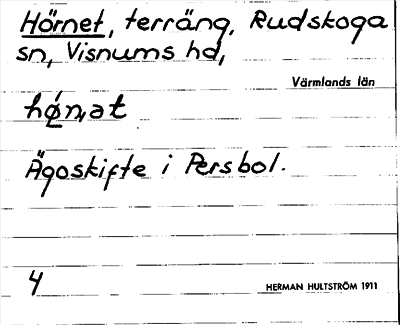 Hörnet, terräng, Rudskoga
sn, Visnums hd,
Värmlands län
hǿn,ət
Ägoskifte i Persbol.
4
HERMAN HULTSTRÖM 1911